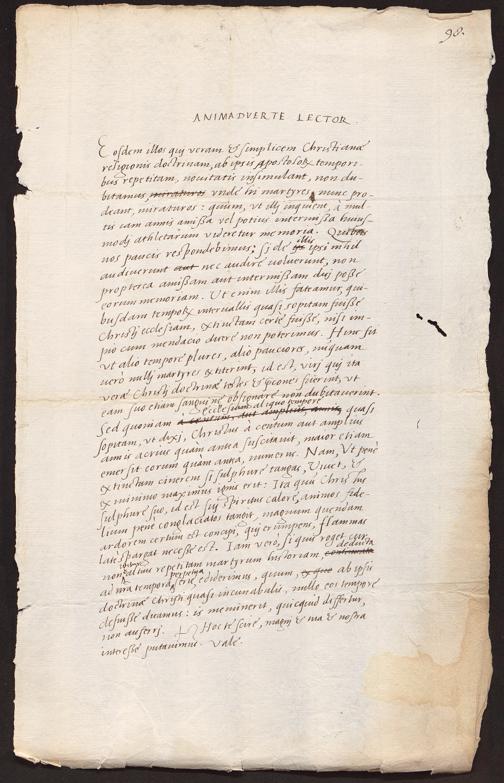 98.
ANIMADVERTE LECTOR.
Eosdem illos qui veram & simplicem Christianæ
religionis doctrinam, ab ipsis Apostolorꝫ tempori-
bus repetitam, novitatis insimulant, non du-
bitamus, miraturos unde hi martyres nunc pro-
deant, miraturos: quum, ut illi inquiunt, à mul-
tis iam annis amissa vel potius intermissa huius-
modi athletarum videretur memoria. Quibus
nos paucis respondebimus; si de illis ipsi nihil
audiverunt aut nec audire voluerunt, non
propterea amissam aut intermissam dici posse
eorum memoriam. Ut enim illis fateamur, qui-
busdam temporꝫ intervallis quasi sopitam fuisse
Christi ecclesiam, extinctam certe fuisse, nisi im-
pio cum mendacio dicere non poterimus. Hinc fit
ut alio tempore plures, alio pauciores, nunquam
vero nulli martyres extiterint; id est, viri qui ita
veræ Christi doctrinæ testes & præcones fuerint, ut
eam suo etiam sanguine obsignare non dubitaverint.
ecclesiam aliquo tempore
Sed quoniam a centum, aut amplius, annis quasi
sopitam, ut dixi, Christus à centum aut amplius
annis acrius quàm antea suscitavit, maior etiam
emersit eorum quàm antea, numerus. Nam, ut penè
extinctum cinerem si sulphure tangas, vivet, &
ex minimo maximus ignis erit: Ita qui Christus
sulphure suo, id est sui spiritus calore, animos fide-
lium penè conglaciatos tangit, magnum quendam
ardorem certum est concipi, qui erumpens, flammas
latè spargat necesse est. Iam verò, si quis roget cur
non altius repetitam martyrum historiam, deducta
ad nostra tempora perpetua serie ediderimus, quum, ex quo ab ipsis
doctrinæ Christi quasi incunabulis, nullo eos tempore
defuisse dicamus: is meminerit, quicquid differtur,
non auferri. Hoc te scire, magni & tua & nostra
interesse putavimus. Vale.